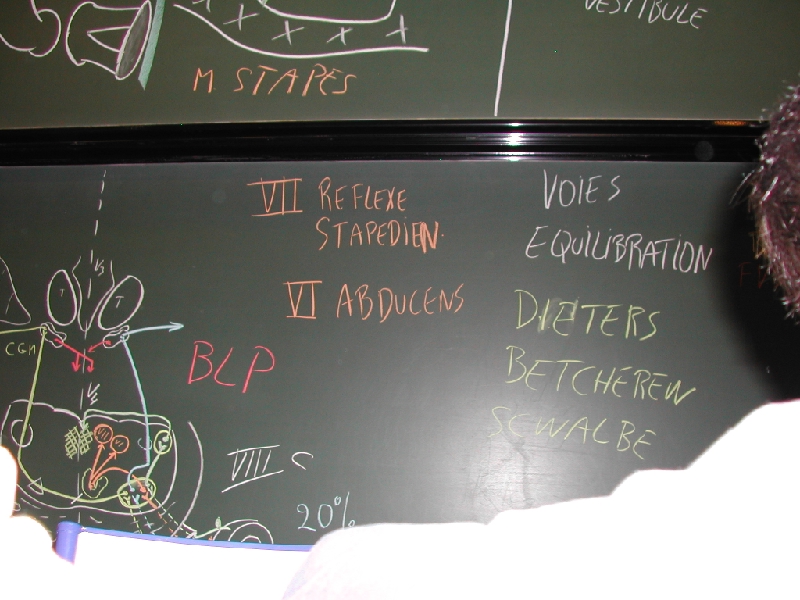 VESTIBULE
M. STAPES
VII REFLEXE
STAPEDIEN.
VI ABDUCENS
BLP
VIII C
20%
CGM
T
T
VOIES
EQUILIBRATION
DIETERS
BETCHEREW
SCWALBE